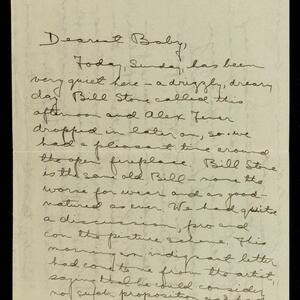 Dearest Baby,
Today, Sunday, has been
very quiet here – a drizzly, dreary
day. Bill Stone called this
afternoon and Alex
dropped in later on, so we
had a pleasant time around
the open fireplace. Bill Stone
is the same old Bill – none the
worse for wear and as good-
natured as ever. We had quite
a discussion, pro and
con the picture scheme. This
morning an indignant letter
had come to me from the artist,
saying that he could consider
no such proposition